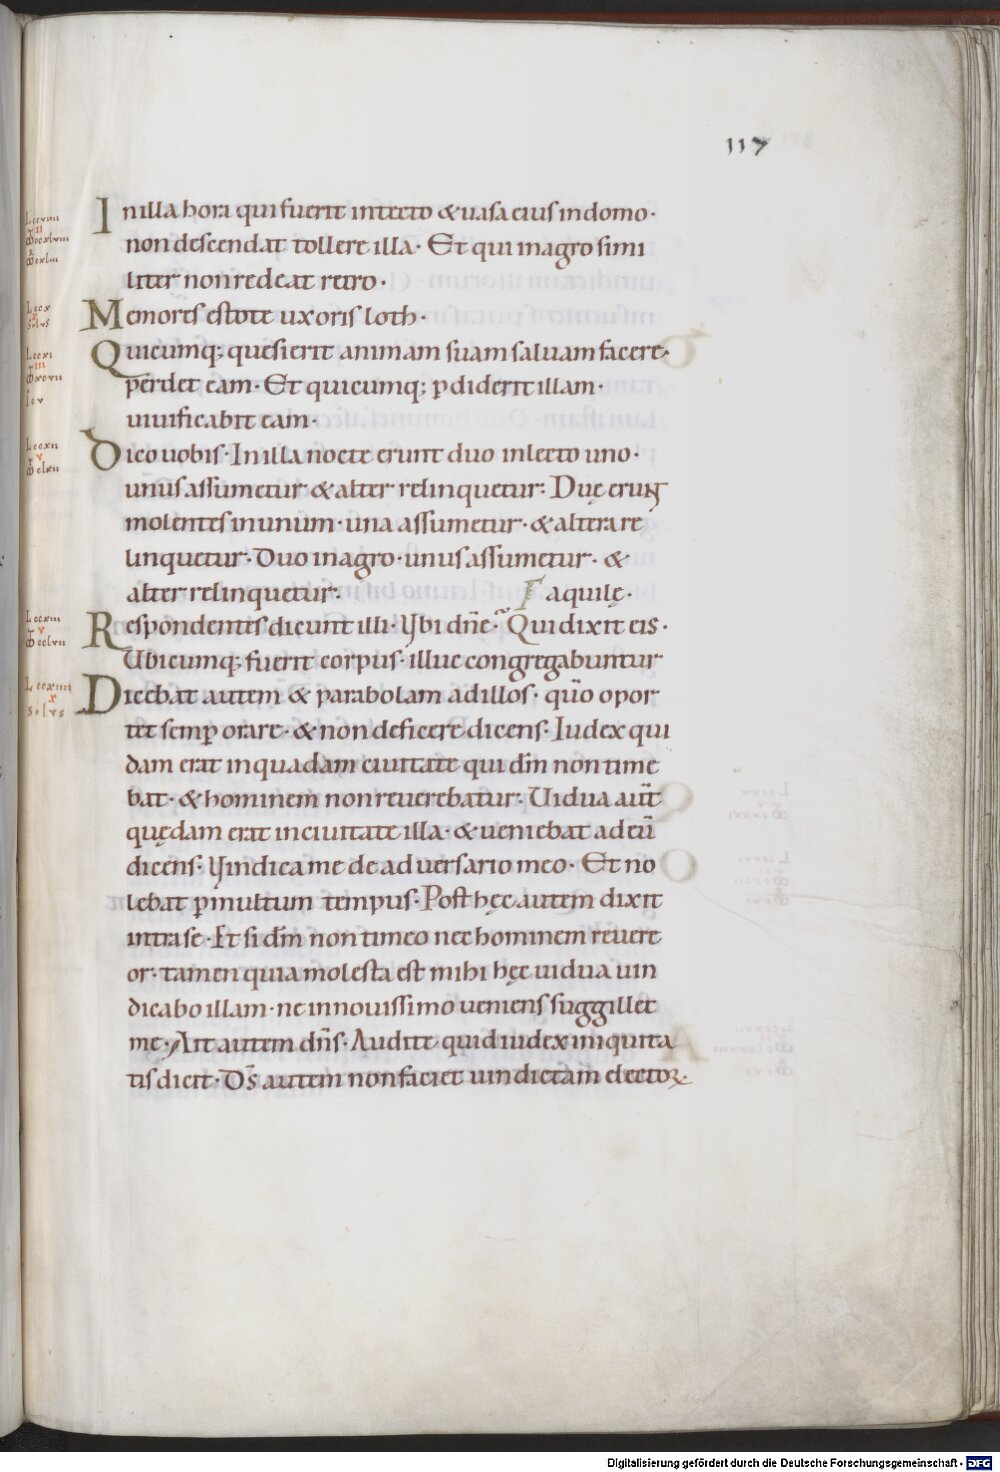 117
In illa hora qui fuerit in tecto & uasa eius in domo·
non descendat tollere illa· Et qui in agro simi
liter non redeat retro·
Memores estote uxoris loth·
Quicumq; quesierit animam suam saluam facere·
perdet eam· Et quicumq; pdiderit illam·
uiuificabit eam·
Dico uobis· In illa nocte erunt duo in lecto uno·
unus assumetur & alter relinquetur· Duę erunt
molentes in unum· una assumetur· & altera re
linquetur· Duo in agro· unus assumetur· &
alter relinquetur· aquilę·
Respondentes dicunt illi· Ubi dñe· Qui dixit eis·
Ubicumq; fuerit corpus· illuc congregabuntur
Dicebat autem & parabolam ad illos· qūo opor
tet semp orare· & non deficere dicens· Iudex qui
dam erat in quadam ciuitate qui dm̄ non time
bat· & hominem non reuerebatur· Uidua aut̄
quędam erat in ciuitate illa· & ueniebat ad eū
dicens· Uindica me de aduersario meo· Et no
lebat p multum tempus· Post hęc autem dixit
intra se· Et si dm̄ non timeo nec hominem reuere
or· tamen quia molesta est mihi hęc uidua uin
dicabo illam· ne in nouissimo ueniens suggillet
me· Ait autem dn̄s· Audite quid iudex iniquita
tis dicit· Ds̄ autem non faciet uindictam electoꝝ·
Digitalisierung gefördert durch die Deutsche Forschungsgemeinschaft - DFG